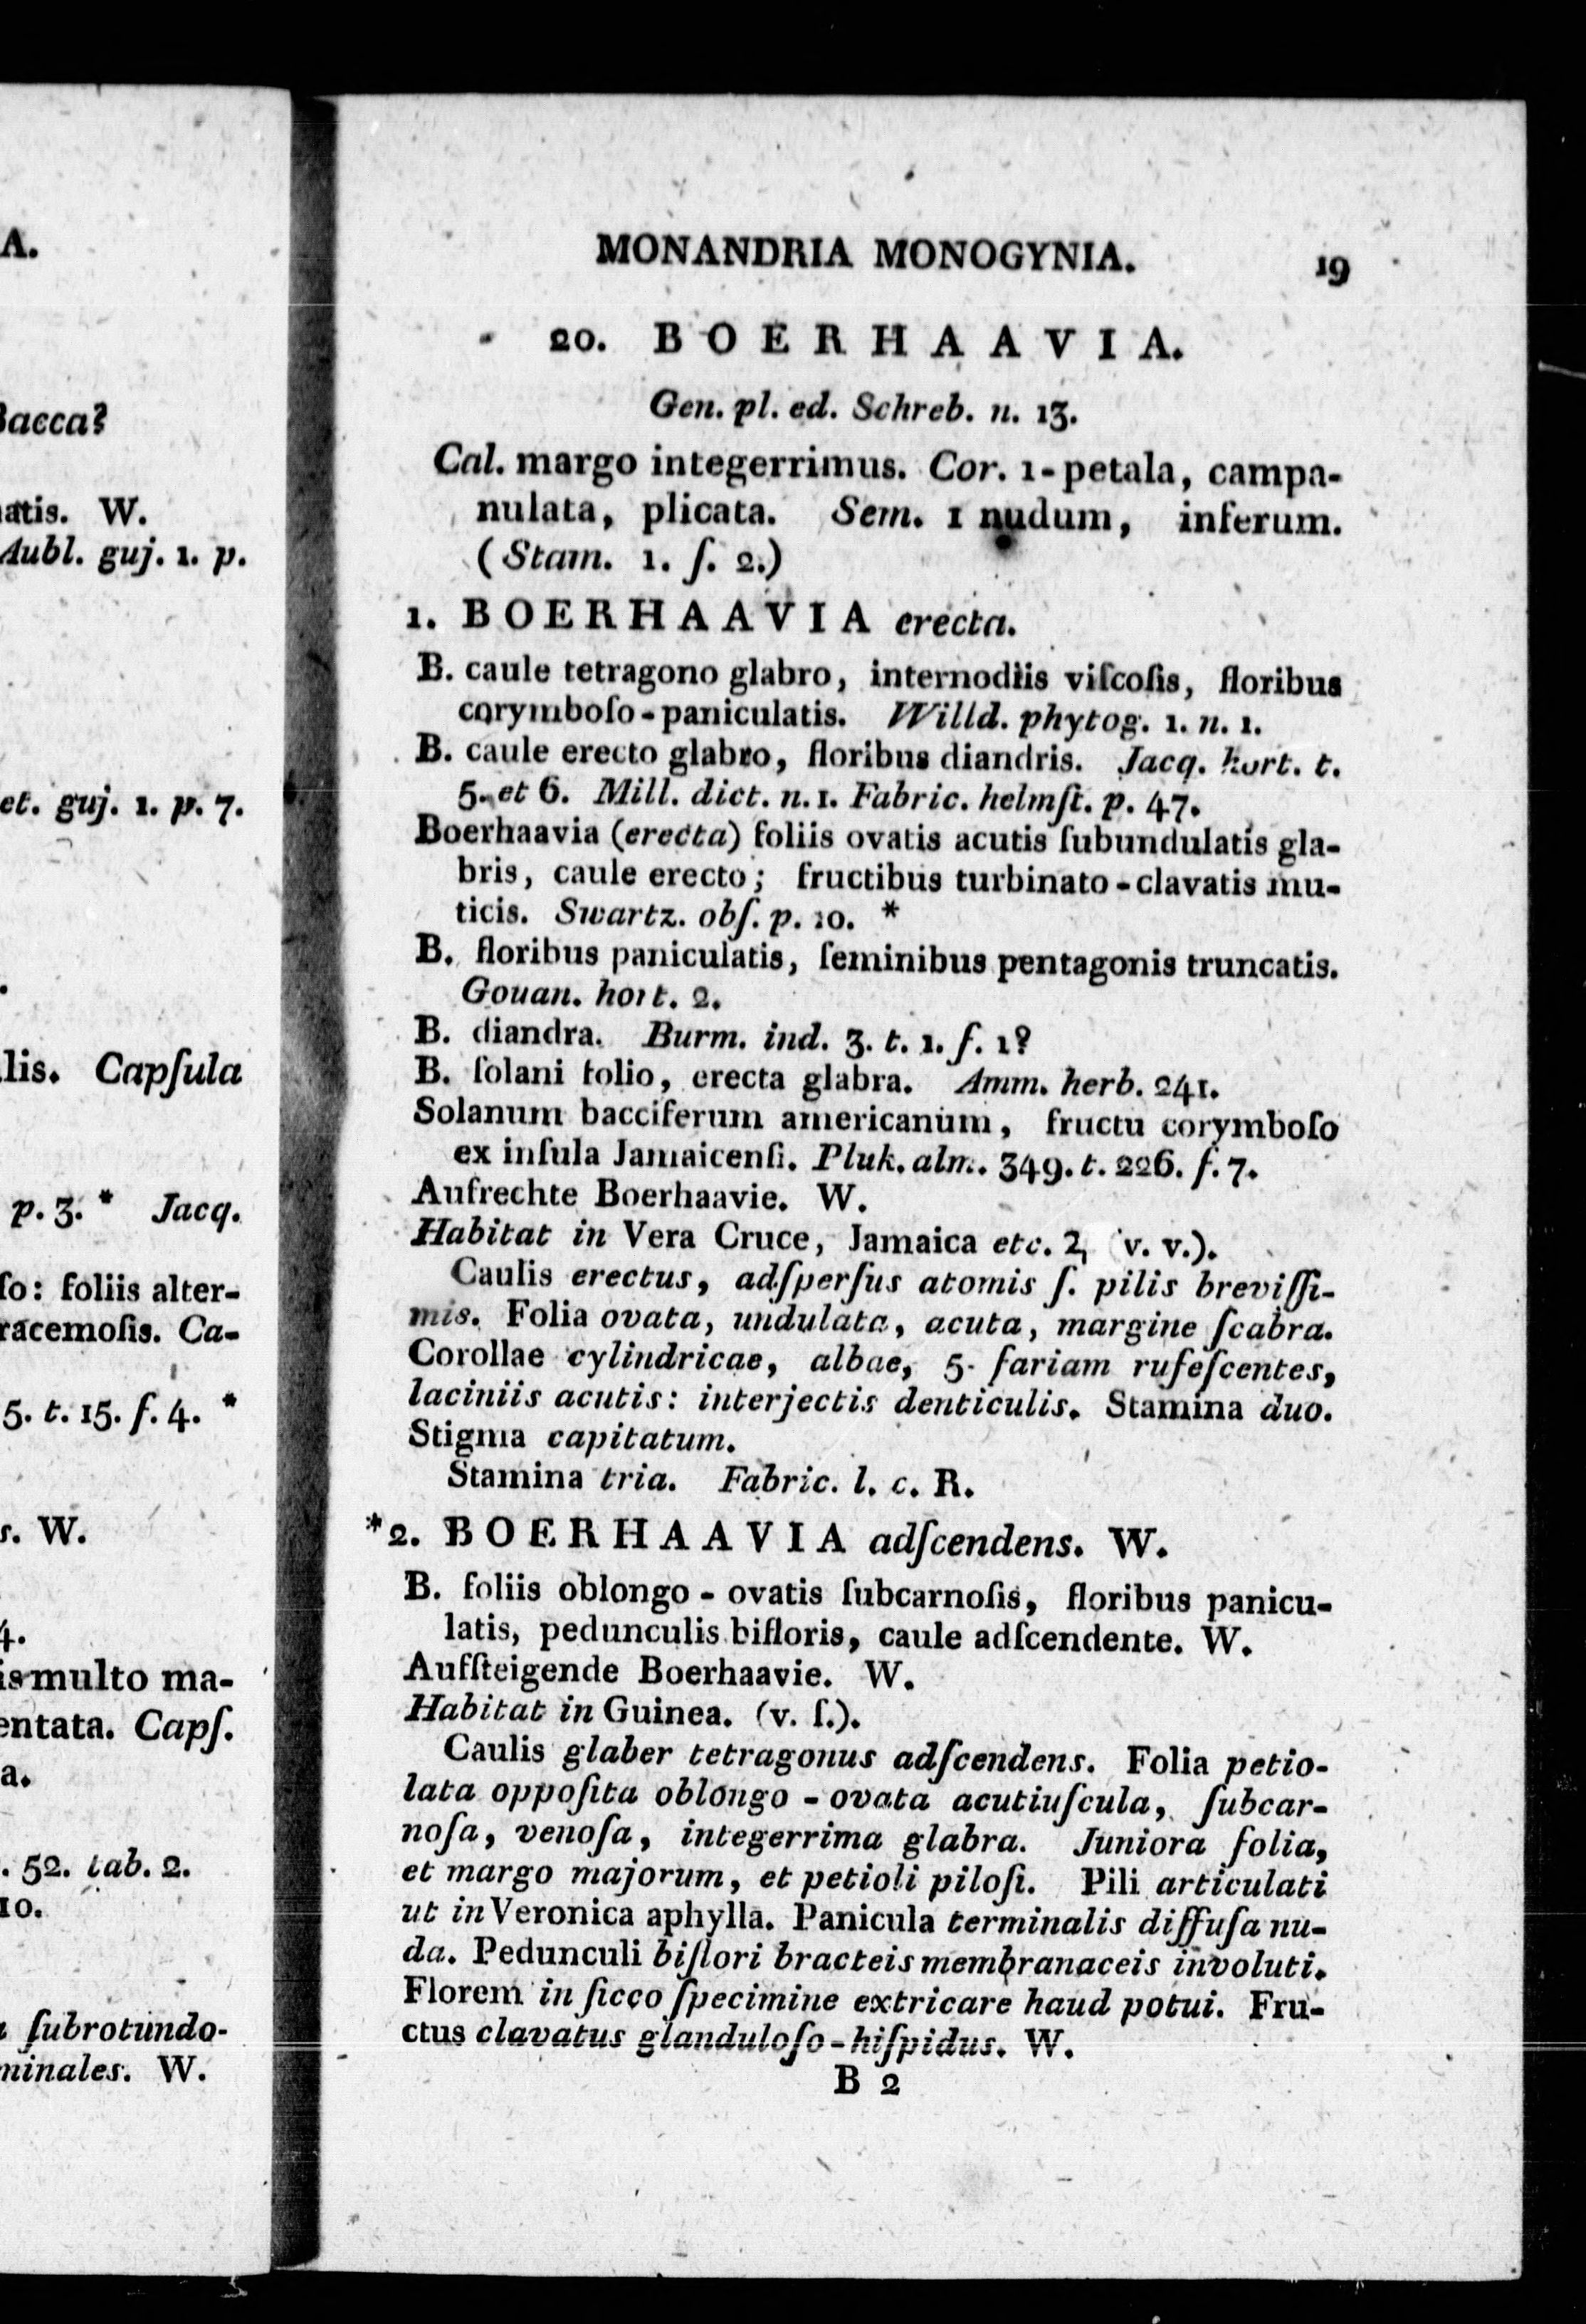 A.
Bacca?
natis. W.
Aubl. guj. 1. p.
et. guj. 1. p. 7.
lis. Capſula
p. 3. * Jacq.
ſo: foliis alter-
racemoſis. Ca-
5. t. 15. f. 4. *
s. W.
4.
is multo ma-
entata. Capſ.
a.
. 52. tab. 2.
10.
ſubrotundo-
minales. W.
MONANDRIA MONOGYNIA. 19
20. BOERHAAVIA.
Gen. pl. ed. Schreb. n. 13.
Cal. margo integerrimus. Cor. 1-petala, campa-
nulata, plicata. Sem. 1 nudum, inferum.
(Stam. 1. ſ. 2.)
1. BOERHAAVIA erecta.
B. caule tetragono glabro, internodiis viſcoſis, floribus
corymboſo-paniculatis. Willd. phytog. 1. n. 1.
B. caule erecto glabro, floribus diandris. Jacq. hort. t.
5. et 6. Mill. dict. n. 1. Fabric. helmſt. p. 47.
Boerhaavia (erecta) foliis ovatis acutis ſubundulatis gla-
bris, caule erecto; fructibus turbinato-clavatis mu-
ticis. Swartz. obſ. p. 10. *
B. floribus paniculatis, ſeminibus pentagonis truncatis.
Gouan. hort. 2.
B. diandra. Burm. ind. 3. t. 1. f. 1?
B. ſolani folio, erecta glabra. Amm. herb. 241.
Solanum bacciferum americanum, fructu corymboſo
ex inſula Jamaicenſi. Pluk. alm. 349. t. 226. f. 7.
Aufrechte Boerhaavie. W.
Habitat in Vera Cruce, Jamaica etc. ♃ (v. v.).
Caulis erectus, adſperſus atomis ſ. pilis breviſſi-
mis. Folia ovata, undulata, acuta, margine ſcabra.
Corollae cylindricae, albae, 5-fariam rufeſcentes,
laciniis acutis: interjectis denticulis. Stamina duo.
Stigma capitatum.
Stamina tria. Fabric. l. c. R.
*2. BOERHAAVIA adſcendens. W.
B. foliis oblongo-ovatis ſubcarnoſis, floribus panicu-
latis, pedunculis bifloris, caule adſcendente. W.
Aufſteigende Boerhaavie. W.
Habitat in Guinea. (v. ſ.).
Caulis glaber tetragonus adſcendens. Folia petio-
lata oppoſita oblongo-ovata acutiuſcula, ſubcar-
noſa, venoſa, integerrima glabra. Juniora folia,
et margo majorum, et petioli piloſi. Pili articulati
ut in Veronica aphylla. Panicula terminalis diffuſa nu-
da. Pedunculi biflori bracteis membranaceis involuti.
Florem in ſicco ſpecimine extricare haud potui. Fru-
ctus clavatus glanduloſo-hiſpidus. W.
B 2